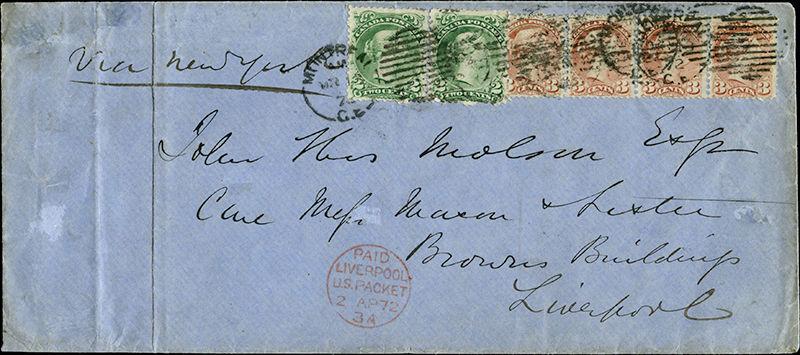 Via New York
CANADA POSTAGE
TWO CENTS
TWO CENTS
3 CENTS 3
3 CENTS 3
3 CENTS 3
3 CENTS 3
MONTREAL
72
C.E.
John Thos Molson Esqr
Care Messrs Mason & Lister
Browns Buildings
Liverpool
PAID
LIVERPOOL
U.S. PACKET
2 AP 72
3A